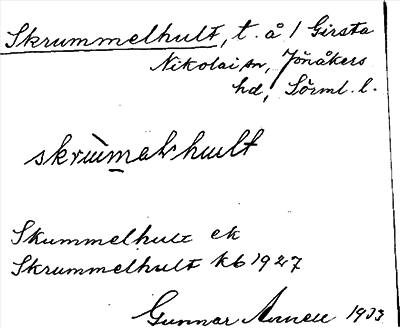 Skrummelhult, t. å / Girsta
Nikolai sn, Jönåkers
hd, Sörml. l.
skrùmalhult
Skummelhult ek
Skrummelhult kb 1927
Gunnar 1933